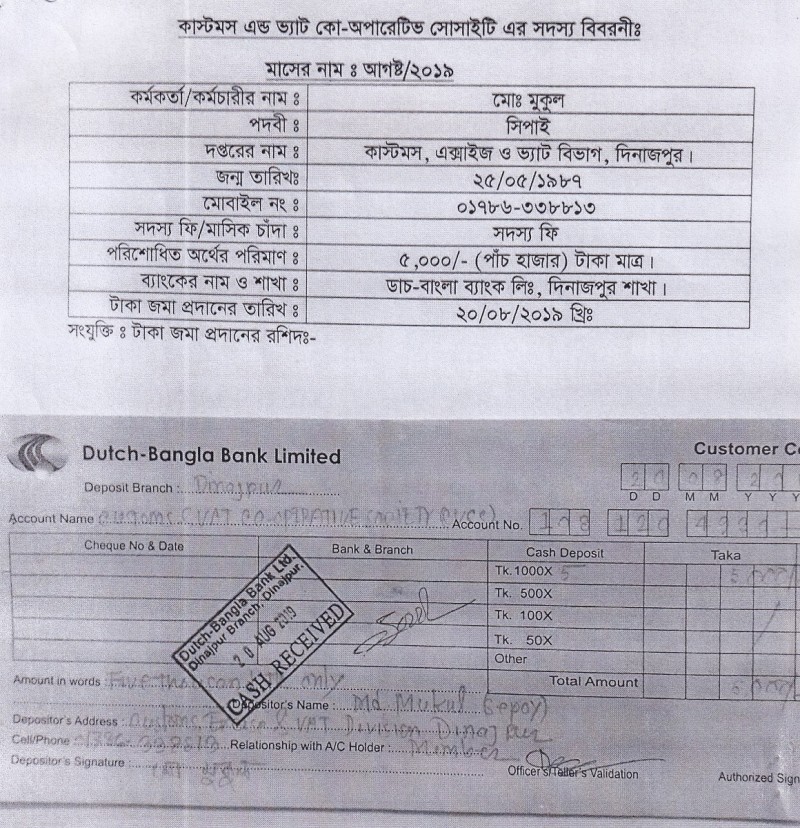 কাস্টমস এন্ড ভ্যাট কো-অপারেটিভ সোসাইটি এর সদস্য বিবরনীঃ
মাসের নাম ঃ আগষ্ট/২০১৯
কর্মকর্তা/কর্মচারীর নাম ঃ মোঃ মুকুল
পদবী ঃ সিপাই
দপ্তরের নাম ঃ কাস্টমস, এক্সাইজ ও ভ্যাট বিভাগ, দিনাজপুর।
জন্ম তারিখঃ ২৫/০৫/১৯৮৭
মোবাইল নং ঃ ০১৭৮৬-৩৩৮৮১৩
সদস্য ফি/মাসিক চাঁদা ঃ সদস্য ফি
পরিশোধিত অর্থের পরিমাণ ঃ ৫,০০০/- (পাঁচ হাজার) টাকা মাত্র।
ব্যাংকের নাম ও শাখা ঃ ডাচ-বাংলা ব্যাংক লিঃ, দিনাজপুর শাখা।
টাকা জমা প্রদানের তারিখ ঃ ২০/০৮/২০১৯ খ্রিঃ
সংযুক্তি ঃ টাকা জমা প্রদানের রশিদঃ-
Dutch-Bangla Bank Limited Customer
Deposit Branch : Dinajpur 20 08
D D M M Y Y Y
Account Name CO-OPERATIVE SOCIETY Account No.
Cheque No & Date Bank & Branch Cash Deposit Taka
Tk. 1000X 5 5,000/
Tk. 500X
Tk. 100X
Tk. 50X
Other
Dutch-Bangla Bank Ltd.
Dinajpur Branch, Dinajpur.
20 AUG 2019
CASH RECEIVED
Amount in words Five only Total Amount
Depositor's Name : Md. Mukul (Sepoy)
Depositor's Address : Customs & VAT Division Dinajpur
Cell/Phone Relationship with A/C Holder : Member
Depositor's Signature : Officer's/Teller's Validation Authorized